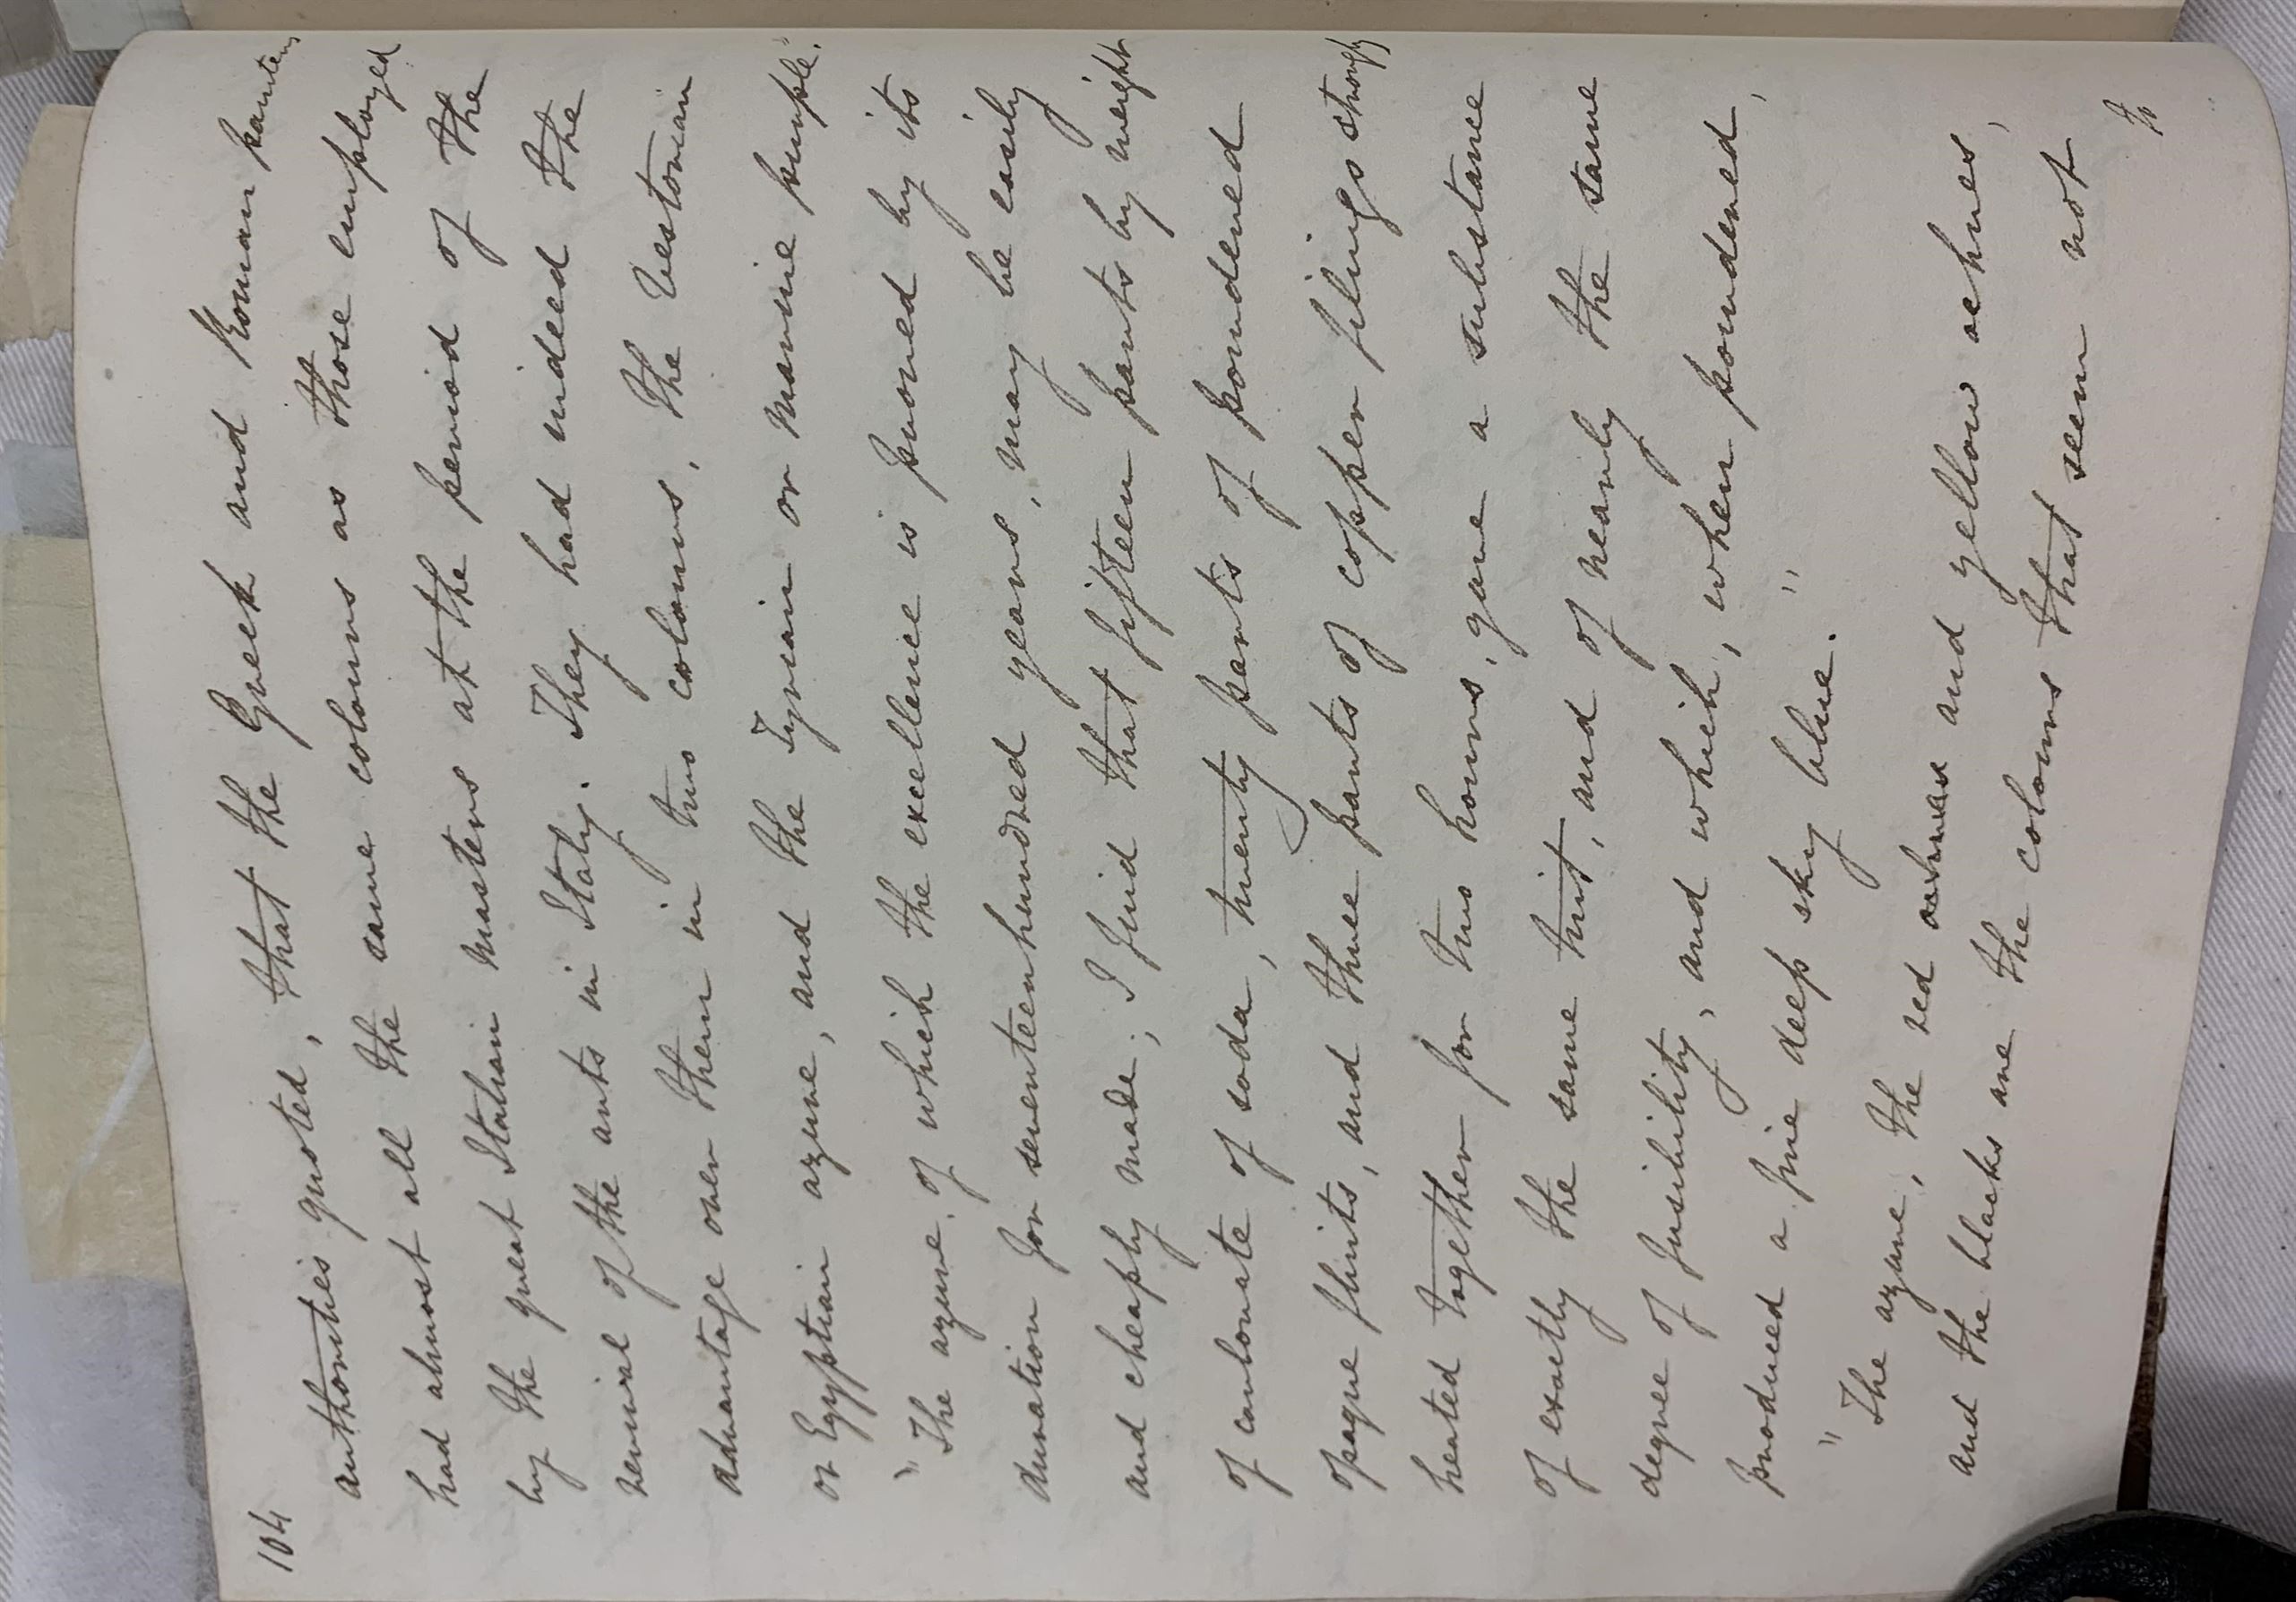 104
authorities quoted, that the Greek and Roman painters
had almost all the same colours as those employed
by the great Italian masters at the period of the
revival of the arts in Italy. They had indeed the
advantage over them in two colours, the Vestorian
or Egyptian azure, and the Tyrian or marine purple.
" The azure, of which the excellence is proved by its
duration for seventeenhundred years, may be easily
and cheaply made; I find that fifteen parts by weight
of carbonate of soda, twenty parts of powdered
opaque flints, and three parts of copper filings strongly
heated together for two hours, gave a substance
of exactly the same tint, and of nearly the same
degree of fusibility, and which, when powdered,
produced a fine deep sky blue. "
" The azure, the red and yellow ochres,
and the blacks are the colours that seem not
to